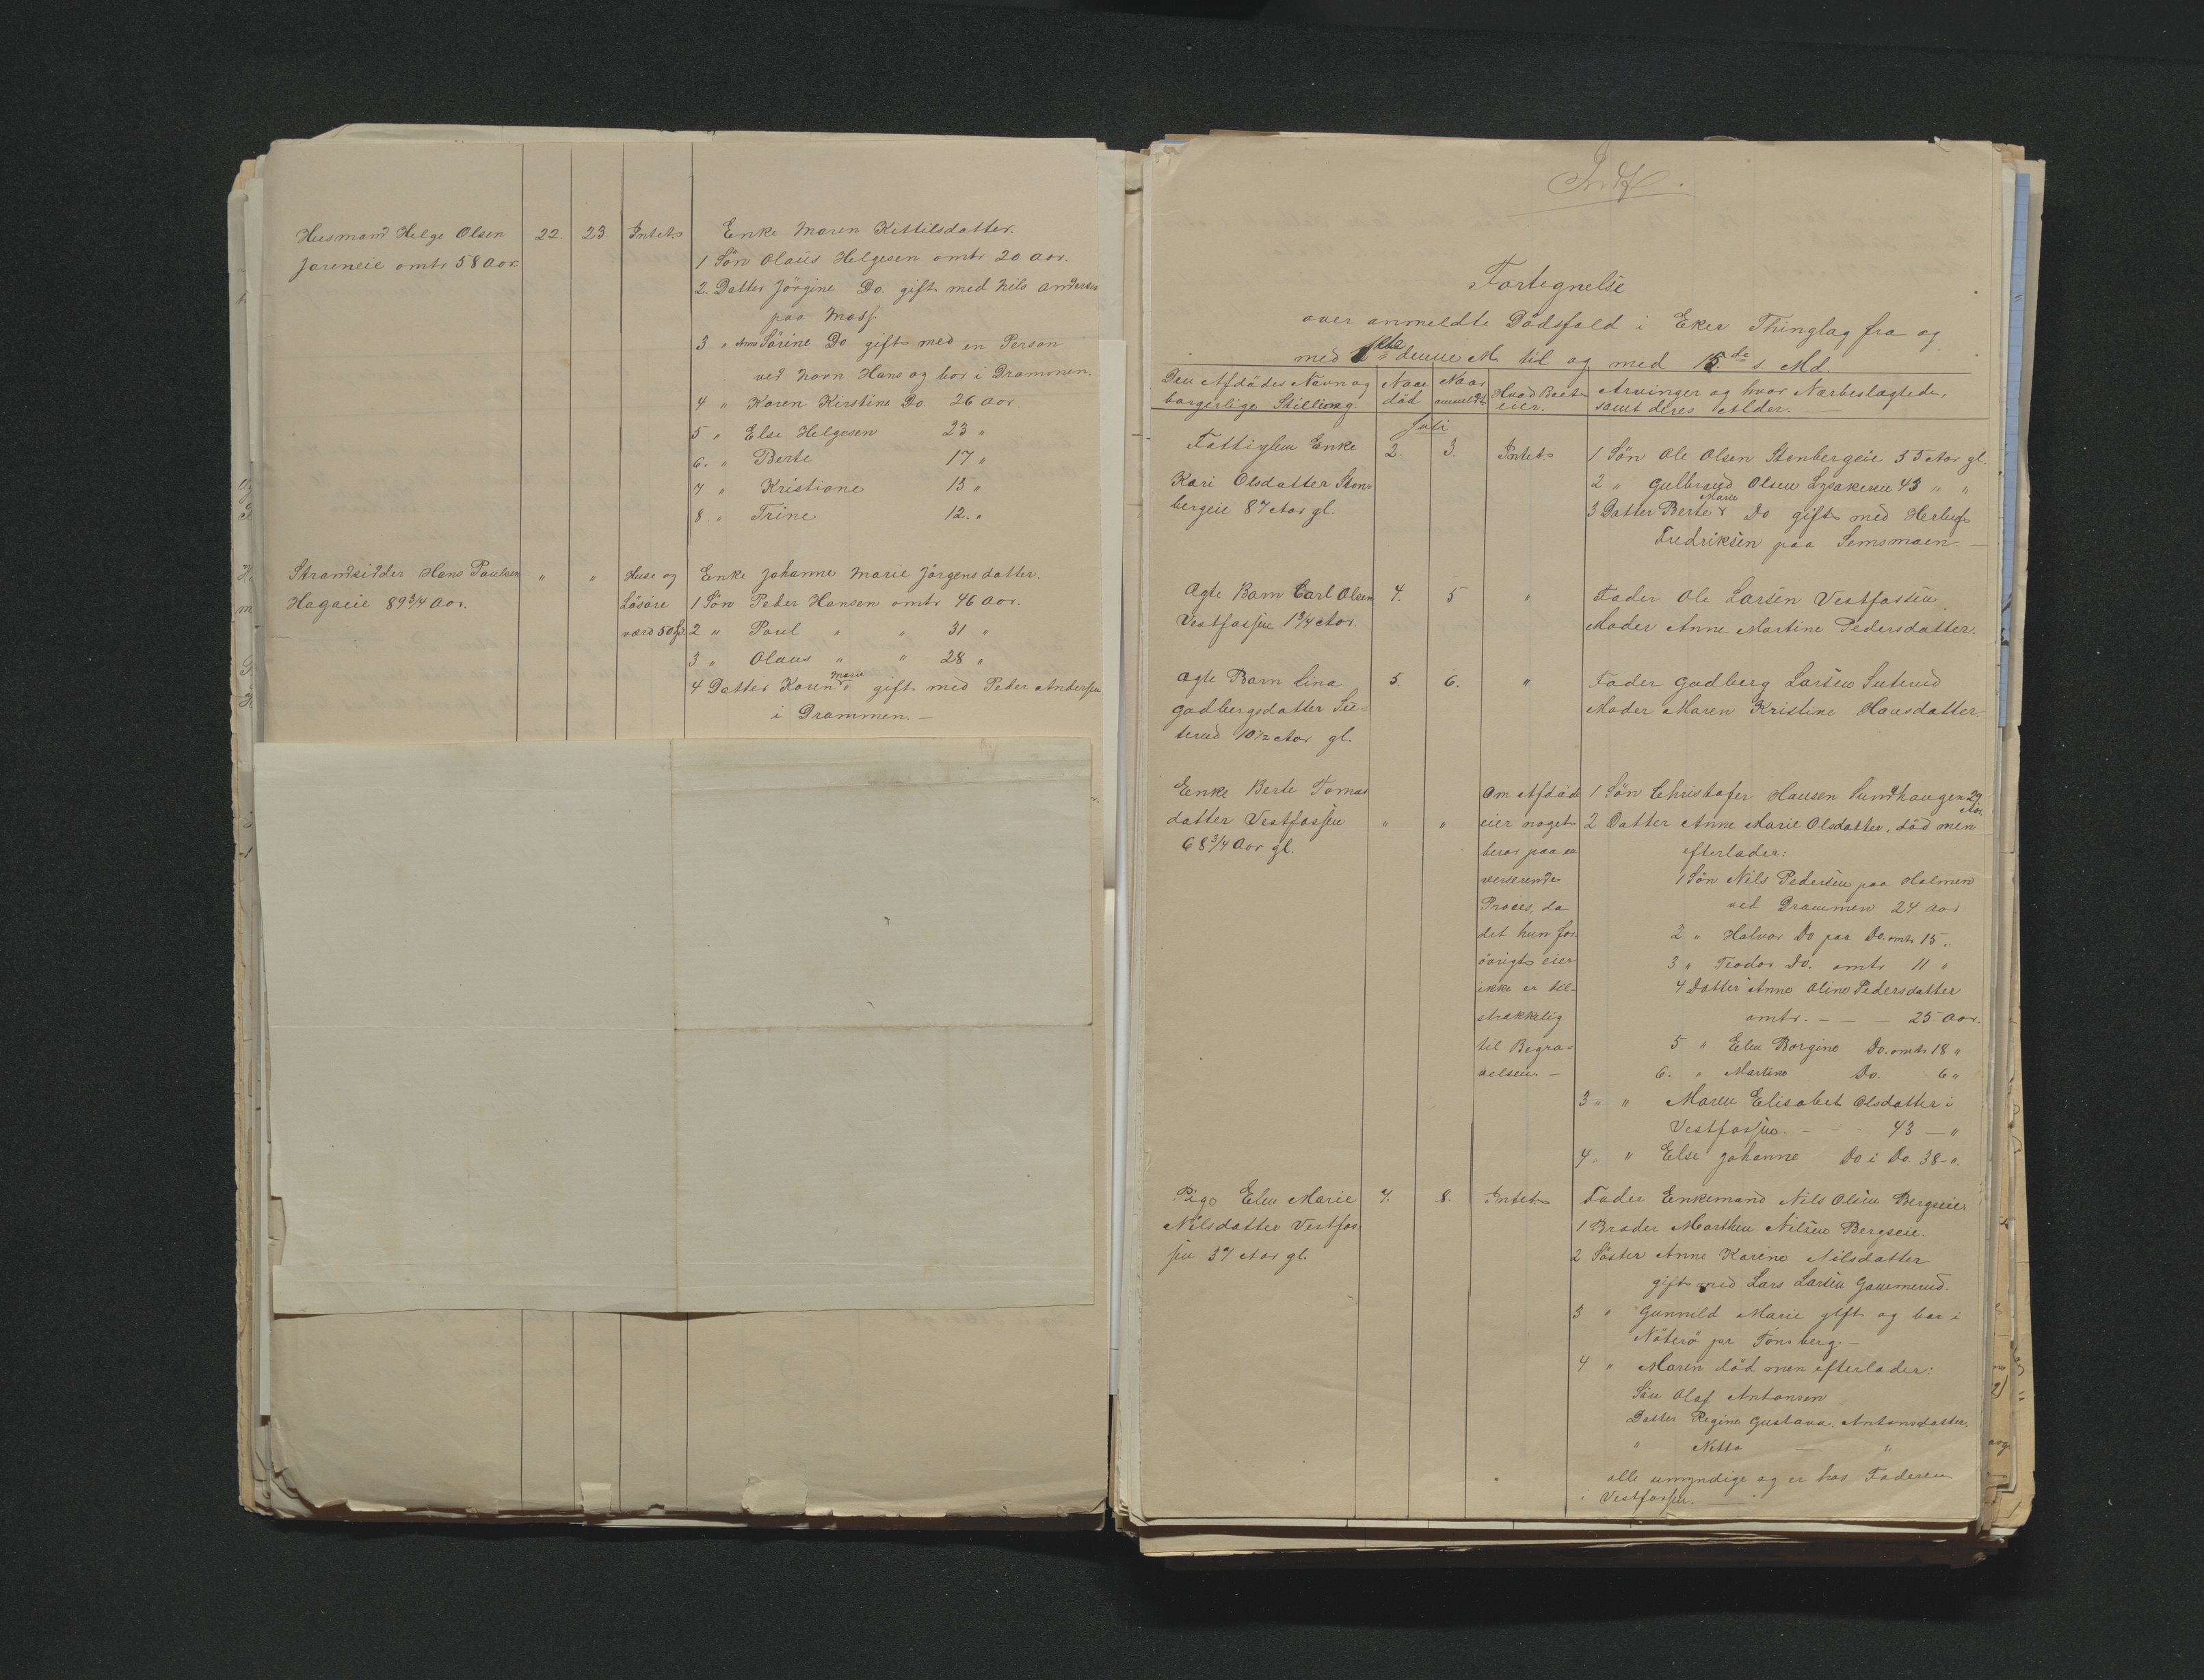 Husmand Helge Olsen 22. 23 Intet. Enke Maren Kittilsdatter.
Jareneie omtr 58 Aar. 1 Sön Olaüs Helgesen omtr 20 Aar.
2. Datter Jörgine Do. gift med Nils Andersen
paa Moss.
3 " Anne Sörine Do gift med en Person
ved Navn Hans og bor i Drammen.
4 " Karen Kirstine Do 26 Aar
5 " Else Helgesen 23 "
6. " Berte 17 "
7 " Kristiane 15 "
8 " Trine 12. "
Strandsidder Hans Paulsen " " Huse og Enke Johanne Marie Jörgensdatter.
Hagaeie 89 3/4 Aar. Lösöre 1 Sön Peder Hansen omtr 46 Aar.
værd 50 2 " Paul " " 31 "
3 " Olaus " " 28 "
4 Datter Karen Marie gift med Peder Andersen
i Drammen. —
Fortegnelse
over anmeldte Dödsfald i Eker Thinglag fra og
med denne M. til og med 15de s. Md.
Den Afdödes Navn og Naar Naar Hvad Boet Arvinger og hvor Nærbeslagtede,
borgerlige Stilling. död anmeldt. eier. samt deres Alder. —
Juli
Fattiglem Enke 2. 3. Intet. 1 Sön Ole Olsen Stenbergeie 35 Aar gl.
Kari Olsdatter Sten- 2 " Gulbrand Olsen 43 " "
bergeie 87 Aar gl. 3 Datter Berte Marie Do gift med Herluf
Fredriksen paa Semsmoen —
Ægte Barn Carl Olsen 4. 5 " Fader Ole Larsen Vestfossen.
Vestfossen 1 3/4 Aar. Moder Anne Martine Pedersdatter.
Ægte Barn Lina 5. 6. " Fader Gudberg Larsen Suterud
Gudbergsdatter Su- Moder Maren Kristine Hansdatter.
terud 10 1/2 Aar gl.
Enke Berte Tomas Om Afdöde 1 Sön Christofer Hansen Sundhaugen 29 Aar
datter Vestfossen " " eier noget 2 Datter Anne Marie Olsdatter, död men
68 3/4 Aar gl. beror paa en efterlader:
verserende 1 Sön Nils Pedersen paa Holmen
Proces, da ved Drammen 24 Aar
det hun for- 2 " Halvor Do paa Do. omtr 15 "
övrigt eier 3 " Teodor Do. omtr 11 "
ikke er til- 4 Datter Anne Oline Pedersdatter
strækkelig omtr. — — — 25 Aar.
til Begra- 5 " Elen Borgine Do. omtr 18 "
velsen — 6. " Martine Do. 6 "
3 " " Maren Elisabet Olsdatter i
Vestfossen - - - 43 — "
4 " Else Johanne Do i Do. 38 - ".
Pige Elen Marie 7. 8. Intet. Fader Enkemand Nils Olsen Bergseie
Nilsdatter Vestfos- 1 Broder Marthin Nilsen Bergseie.
sen 37 Aar gl. 2 Söster Anne Karine Nilsdatter
gift med Lars Larsen Gunnerud.
3 " Gunnild Marie gift og bor i
Nöterö pr Tönsberg. —
4 " Maren död men efterlader:
Sön Olaf Antonsen
Datter Regine Gustava Antonsdatter.
" Netta — "
alle umyndige og er hos Faderen
i Vestfossen. —